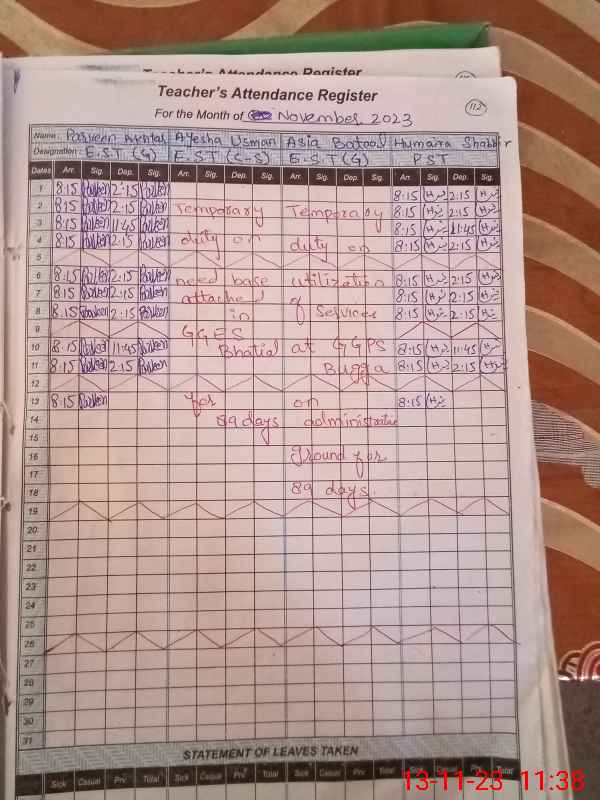 Teacher's Attendance Register
Teacher's Attendance Register
112
For the Month of November 2023
Name: Parveen Akhtar Ayesha Usman Asia Batool Humaira Shabbir
Designation: E.S.T (G) E.S.T (S-S) E.S.T (G) PST
Dates Arr. Sig. Dep. Sig. Arr. Sig. Dep. Sig. Arr. Sig. Dep. Sig. Arr. Sig. Dep. Sig.
1 8:15 Parveen 2:15 Parveen 8:15 2:15
2 8:15 Parveen 2:15 Parveen Temporary Temporary 8:15 2:15
3 8:15 Parveen 11:45 Parveen 8:15 11:45
4 8:15 Parveen 2:15 Parveen duty on duty on 8:15 2:15
5
6 8:15 Parveen 2:15 Parveen need base utilization 8:15 2:15
7 8:15 Parveen 2:15 Parveen attached of Services 8:15 2:15
8 8:15 Parveen 2:15 Parveen in 8:15 2:15
9 GGES
10 8:15 Parveen 11:45 Parveen Bhatial at GGPS 8:15 11:45
11 8:15 Parveen 2:15 Parveen Bugga 8:15 2:15
12
13 8:15 Parveen for on 8:15
14 89 days administrative
15
16 ground for
17
18 89 days.
19
20
21
22
23
24
25
26
27
28
29
30
31
STATEMENT OF LEAVES TAKEN
Sick Casual Prv Total Sick Casual Prv Total Sick Casual Prv Total Sick Casual Prv Total
13-11-23 11:38